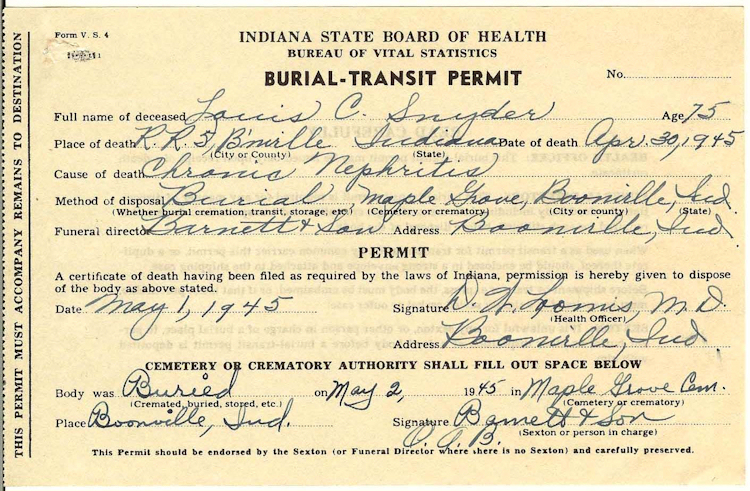 Form V. S. 4
INDIANA STATE BOARD OF HEALTH
BUREAU OF VITAL STATISTICS
BURIAL-TRANSIT PERMIT
No.
Full name of deceased Louis C. Snyder Age 75
Place of death R.R. 5, B'nville Indiana Date of death Apr. 30, 1945
(City or County) (State)
Cause of death Chronic Nephritis
Method of disposal Burial Maple Grove, Boonville, Ind
(Whether burial cremation, transit, storage, etc.) (Cemetery or crematory) (City or county) (State)
Funeral director Barnett & Son Address Boonville, Ind
PERMIT
A certificate of death having been filed as required by the laws of Indiana, permission is hereby given to dispose
of the body as above stated.
Date May 1, 1945 Signature Loomis, M.D.
(Health Officer)
Address Boonville, Ind
CEMETERY OR CREMATORY AUTHORITY SHALL FILL OUT SPACE BELOW
Body was Buried on May 2, 1945 in Maple Grove Cem.
(Cremated, buried, stored, etc.) (Cemetery or crematory)
Place Boonville, Ind. Signature Barnett & Son
(Sexton or person in charge)
This Permit should be endorsed by the Sexton (or Funeral Director where there is no Sexton) and carefully preserved.
THIS PERMIT MUST ACCOMPANY REMAINS TO DESTINATION